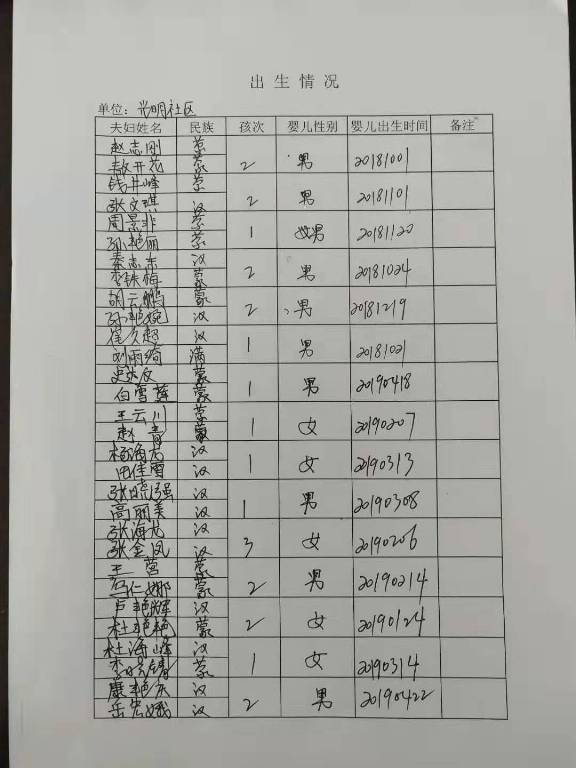 出生情况
单位：光明社区
夫妇姓名 民族 孩次 婴儿性别 婴儿出生时间 备注
赵志刚 蒙
敖开花 蒙 2 男 20181001
钱井峰 蒙
张文琪 汉 2 男 20181101
周景非 蒙
孙艳丽 蒙 1 男 20181120
秦志东 汉
李铁梅 蒙 2 男 20181024
胡云鹏 蒙
孙艳婉 汉 2 男 20181219
崔久超 汉
刘雨绮 满 1 男 20181021
蒙
白雪莲 蒙 1 男 20190418
王云川 蒙
赵青 蒙 1 女 20190207
杨海龙 汉
田佳雪 汉 1 女 20190313
张晓强 汉
高丽美 汉 1 男 20190308
张海龙 汉
张金凤 汉 3 女 20190206
王营 蒙
仁娜 蒙 2 男 20190214
卢艳辉 汉
杜艳艳 蒙 2 女 20190124
杜海峰 汉
李 蒙 1 女 20190314
康艳东 汉
岳宏娥 汉 2 男 20190422